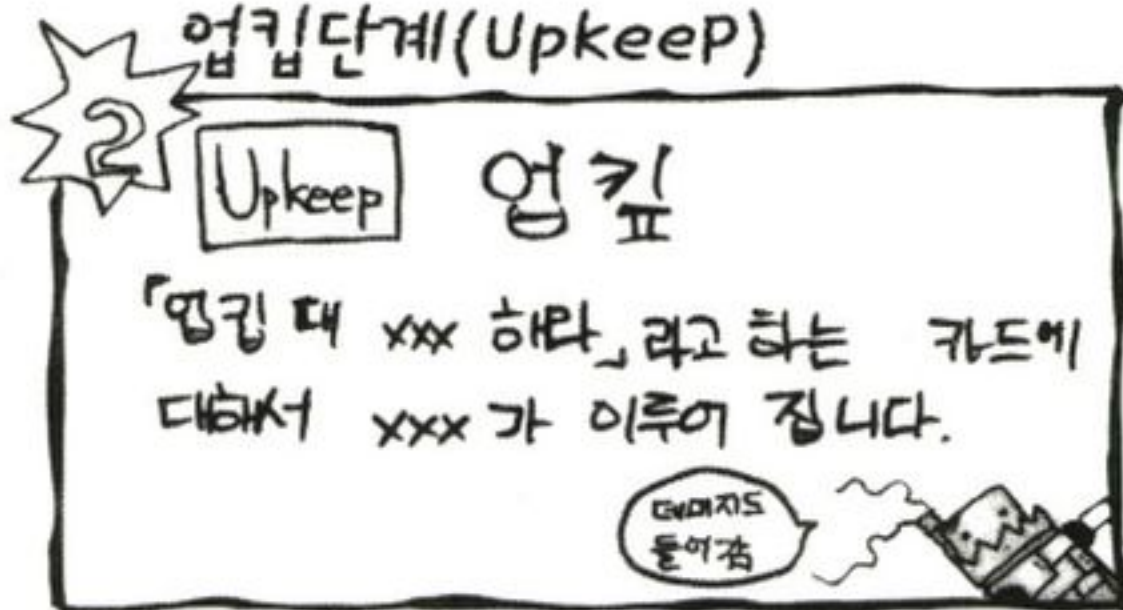 업킵단계(UpkeeP)
2
Upkeep 업킾
「업킵 때 xxx 하라」라고 하는 카드에
대해서 xxx가 이루어 집니다.
데미지도
들어감